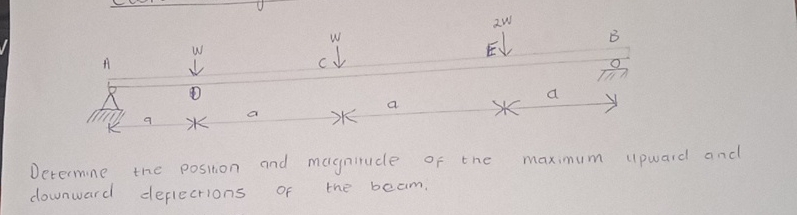 2W
W
W
B
A
C
E
D
a
a
a
a
Determine the position and magnitude of the maximum upward and
downward deflections of the beam.